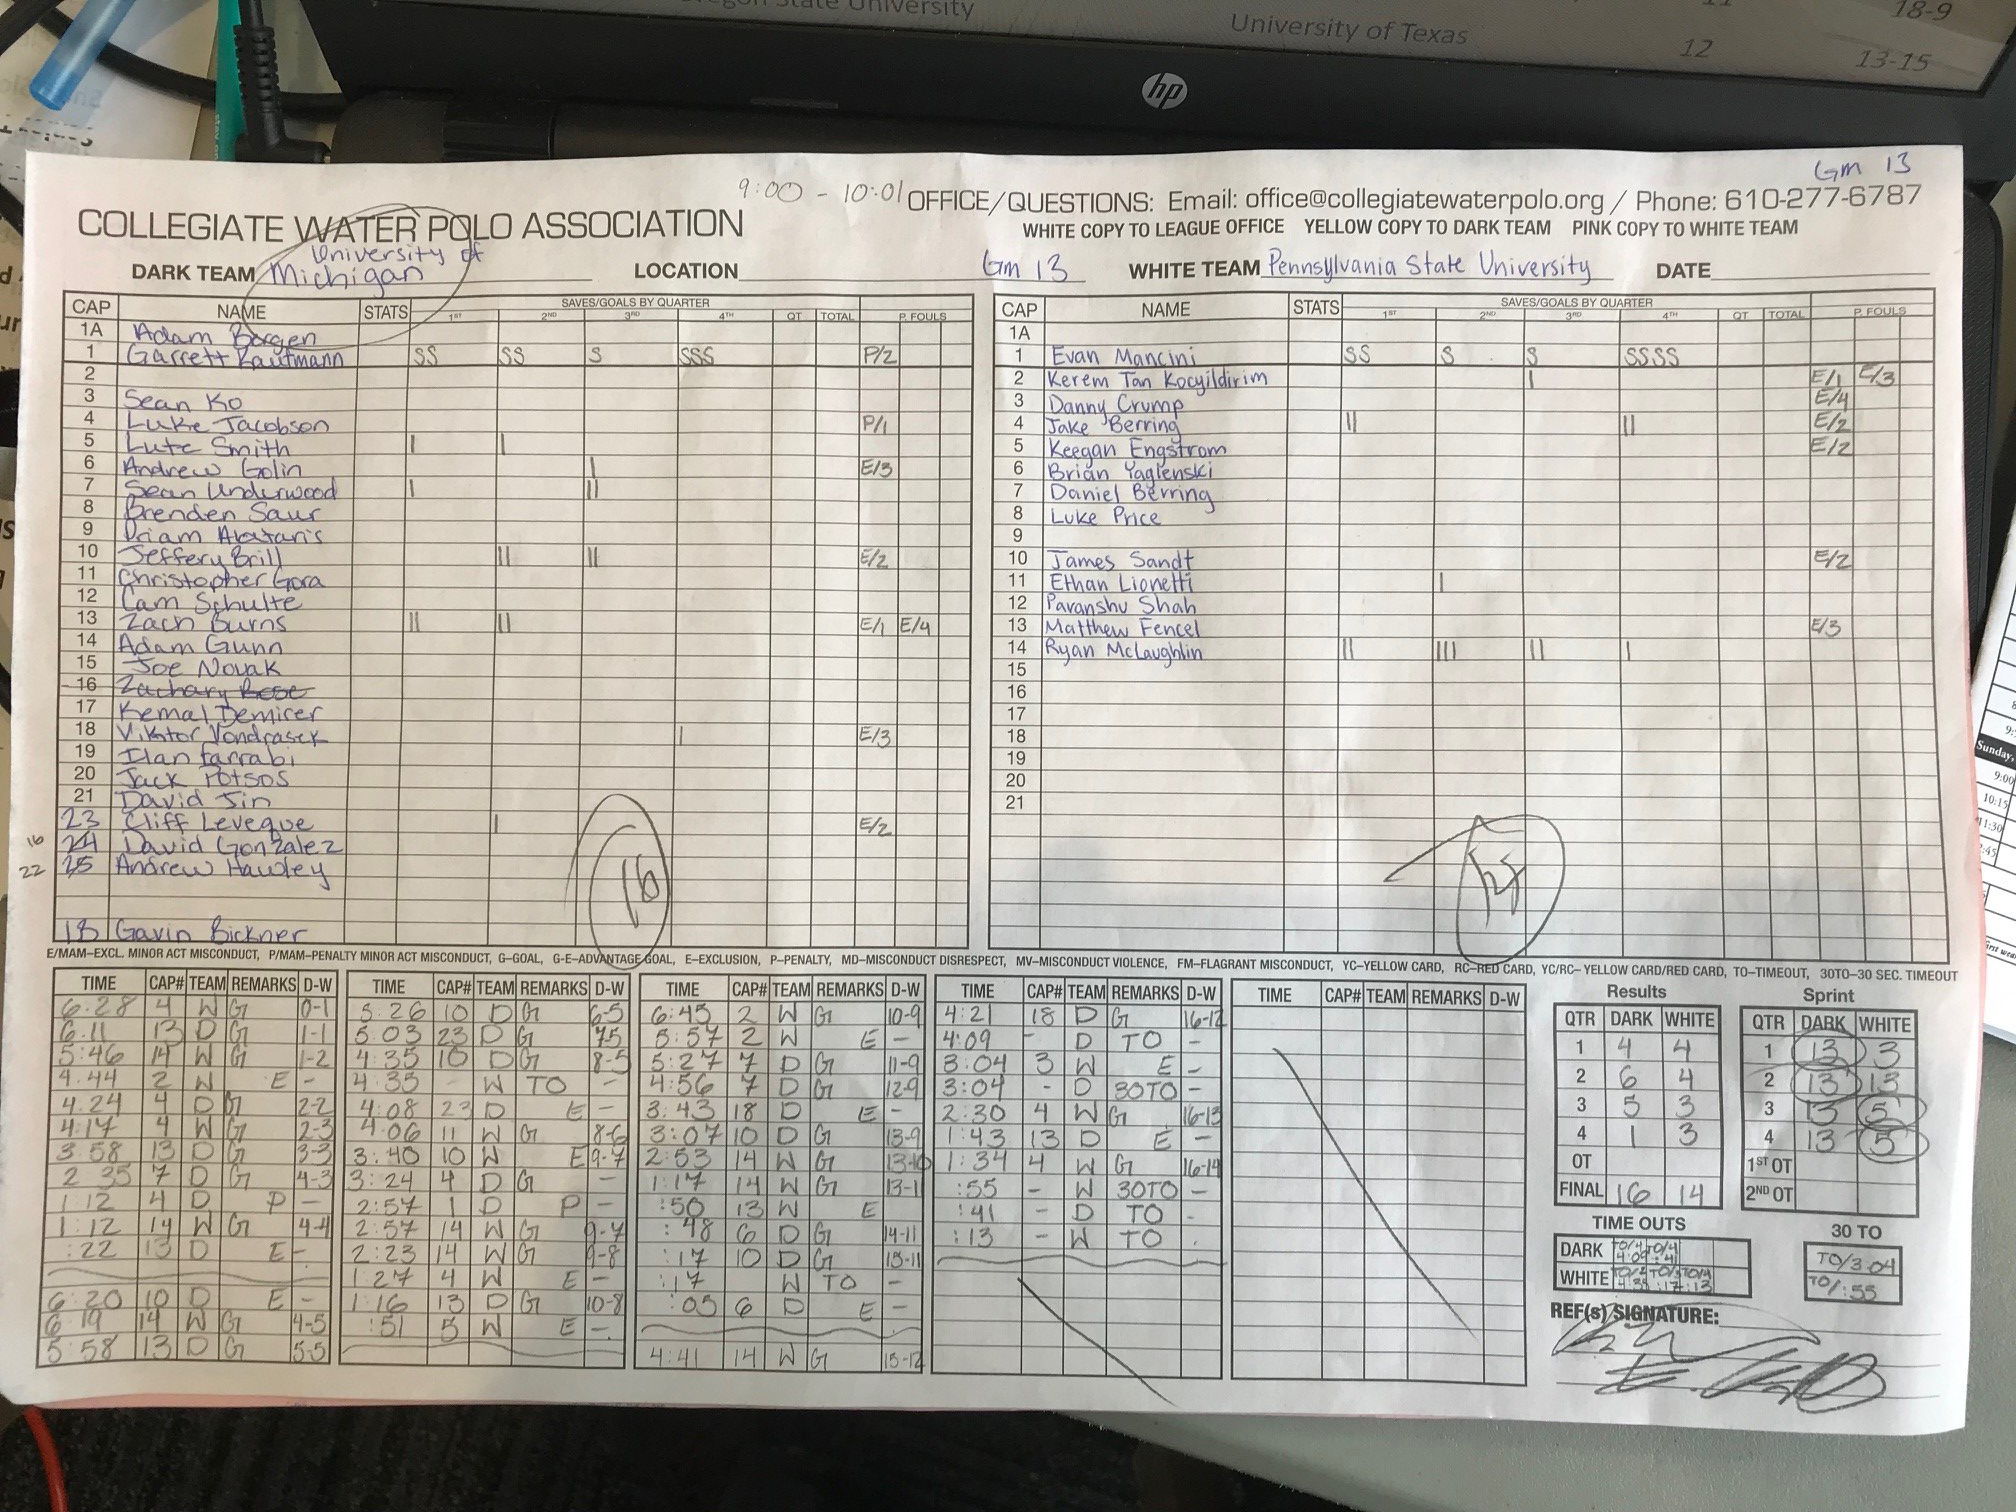 Oregon State University
University of Texas
11
18-9
12
13-15
hp
Gm 13
9:00 - 10:01
OFFICE/QUESTIONS: Email: office@collegiatewaterpolo.org / Phone: 610-277-6787
COLLEGIATE WATER POLO ASSOCIATION
WHITE COPY TO LEAGUE OFFICE YELLOW COPY TO DARK TEAM PINK COPY TO WHITE TEAM
DARK TEAM University of Michigan LOCATION
Gm 13 WHITE TEAM Pennsylvania State University DATE
CAP NAME STATS SAVES/GOALS BY QUARTER 1ST 2ND 3RD 4TH OT TOTAL P. FOULS
1A Adam Bergen
1 Garrett Kaufmann SS SS S SSS P/2
2
3 Sean Ko
4 Luke Jacobson P/1
5 Lute Smith | |
6 Andrew Golin | E/3
7 Sean Underwood | ||
8 Brenden Saur
9
10 Jeffery Brill || || E/2
11 Christopher Gora
12 Cam Schulte
13 Zach Burns || || E/1 E/4
14 Adam Gunn
15 Joe Novak
16 Zachary Rose
17 Kemal Demirer
18 Viktor Vondrasek | E/3
19 Ilan Farrabi
20 Jack Potsos
21 David Jin
23 Cliff Leveque | E/2
16 24 David Gonzalez
22 25 Andrew Hawley
16
Gavin Bickner
CAP NAME STATS SAVES/GOALS BY QUARTER 1ST 2ND 3RD 4TH OT TOTAL P. FOULS
1A
1 Evan Mancini SS S S SSSS
2 Kerem Tan Kocyildirim | E/1 E/3
3 Danny Crump E/4
4 Jake Berring || || E/2
5 Keegan Engstrom E/2
6 Brian Yaglenski
7 Daniel Berring
8 Luke Price
9
10 James Sandt E/2
11 Ethan Lionetti |
12 Paranshu Shah
13 Matthew Fencel E/3
14 Ryan McLaughlin || ||| || |
15
16
17
18
19
20
21
E/MAM–EXCL. MINOR ACT MISCONDUCT, P/MAM–PENALTY MINOR ACT MISCONDUCT, G–GOAL, G-E–ADVANTAGE GOAL, E–EXCLUSION, P–PENALTY, MD–MISCONDUCT DISRESPECT, MV–MISCONDUCT VIOLENCE, FM–FLAGRANT MISCONDUCT, YC–YELLOW CARD, RC–RED CARD, YC/RC–YELLOW CARD/RED CARD, TO–TIMEOUT, 30TO–30 SEC. TIMEOUT
TIME CAP# TEAM REMARKS D-W
6:28 4 W G 0-1
6:11 13 D G 1-1
5:46 14 W G 1-2
4:44 2 W E -
4:24 4 D G 2-2
4:17 4 W G 2-3
3 58 13 D G 3-3
2 35 7 D G 4-3
1 12 4 D P -
1:12 14 W G 4-4
:22 13 D E -
6:20 10 D E -
6 19 14 W G 4-5
5:58 13 D G 5-5
TIME CAP# TEAM REMARKS D-W
5:26 10 D G 6-5
5:03 23 D G 7-5
4:35 10 D G 8-5
4:35 - W TO -
4:08 23 D E -
4:06 11 W G 8-6
3:40 10 W E 9-7
3:24 4 D G -
2:57 1 D P -
2:57 14 W G 9-7
2:23 14 W G 9-8
1:27 4 W E -
1:16 13 D G 10-8
:51 5 W E -
TIME CAP# TEAM REMARKS D-W
6:45 2 W G 10-9
5:57 2 W E -
5:27 7 D G 11-9
4:56 7 D G 12-9
3:43 18 D E -
3:07 10 D G 13-9
2:53 14 W G 13-10
1:17 14 W G 13-11
:50 13 W E
:48 6 D G 14-11
:17 10 D G 15-11
:17 W TO -
:05 6 D E -
4:41 14 W G 15-12
TIME CAP# TEAM REMARKS D-W
4:21 18 D G 16-12
4:09 - D TO -
3:04 3 W E -
3:04 - D 30TO -
2:30 4 W G 16-13
1:43 13 D E -
1:34 4 W G 16-14
:55 - W 30TO -
:41 - D TO -
:13 - W TO -
TIME CAP# TEAM REMARKS D-W
Results
QTR DARK WHITE
1 4 4
2 6 4
3 5 3
4 1 3
OT
FINAL 16 14
Sprint
QTR DARK WHITE
1 13 3
2 13 13
3 13 5
4 13 5
1ST OT
2ND OT
TIME OUTS
DARK TO/4 4:09 TO/4 :41
WHITE TO/2 4:35 TO/3 :17 TO/4 :13
30 TO
TO/3 04
TO/:55
REF(s) SIGNATURE:
Sunday,
9:00
10:15
11:30